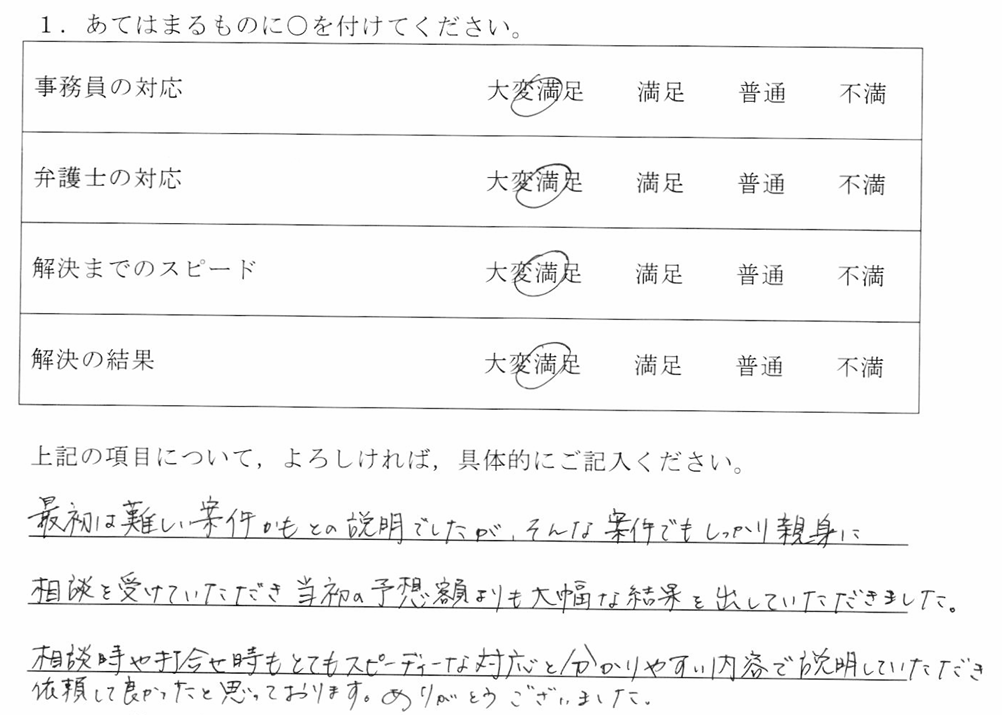 1．あてはまるものに○を付けてください。
事務員の対応 大変満足 満足 普通 不満
弁護士の対応 大変満足 満足 普通 不満
解決までのスピード 大変満足 満足 普通 不満
解決の結果 大変満足 満足 普通 不満
上記の項目について，よろしければ，具体的にご記入ください。
最初は難しい案件かもとの説明でしたが、そんな案件でもしっかり親身に
相談を受けていただき当初の予想額よりも大幅な結果を出していただきました。
相談時や打合せ時もとてもスピーディーな対応と分かりやすい内容で説明していただき
依頼して良かったと思っております。ありがとうございました。